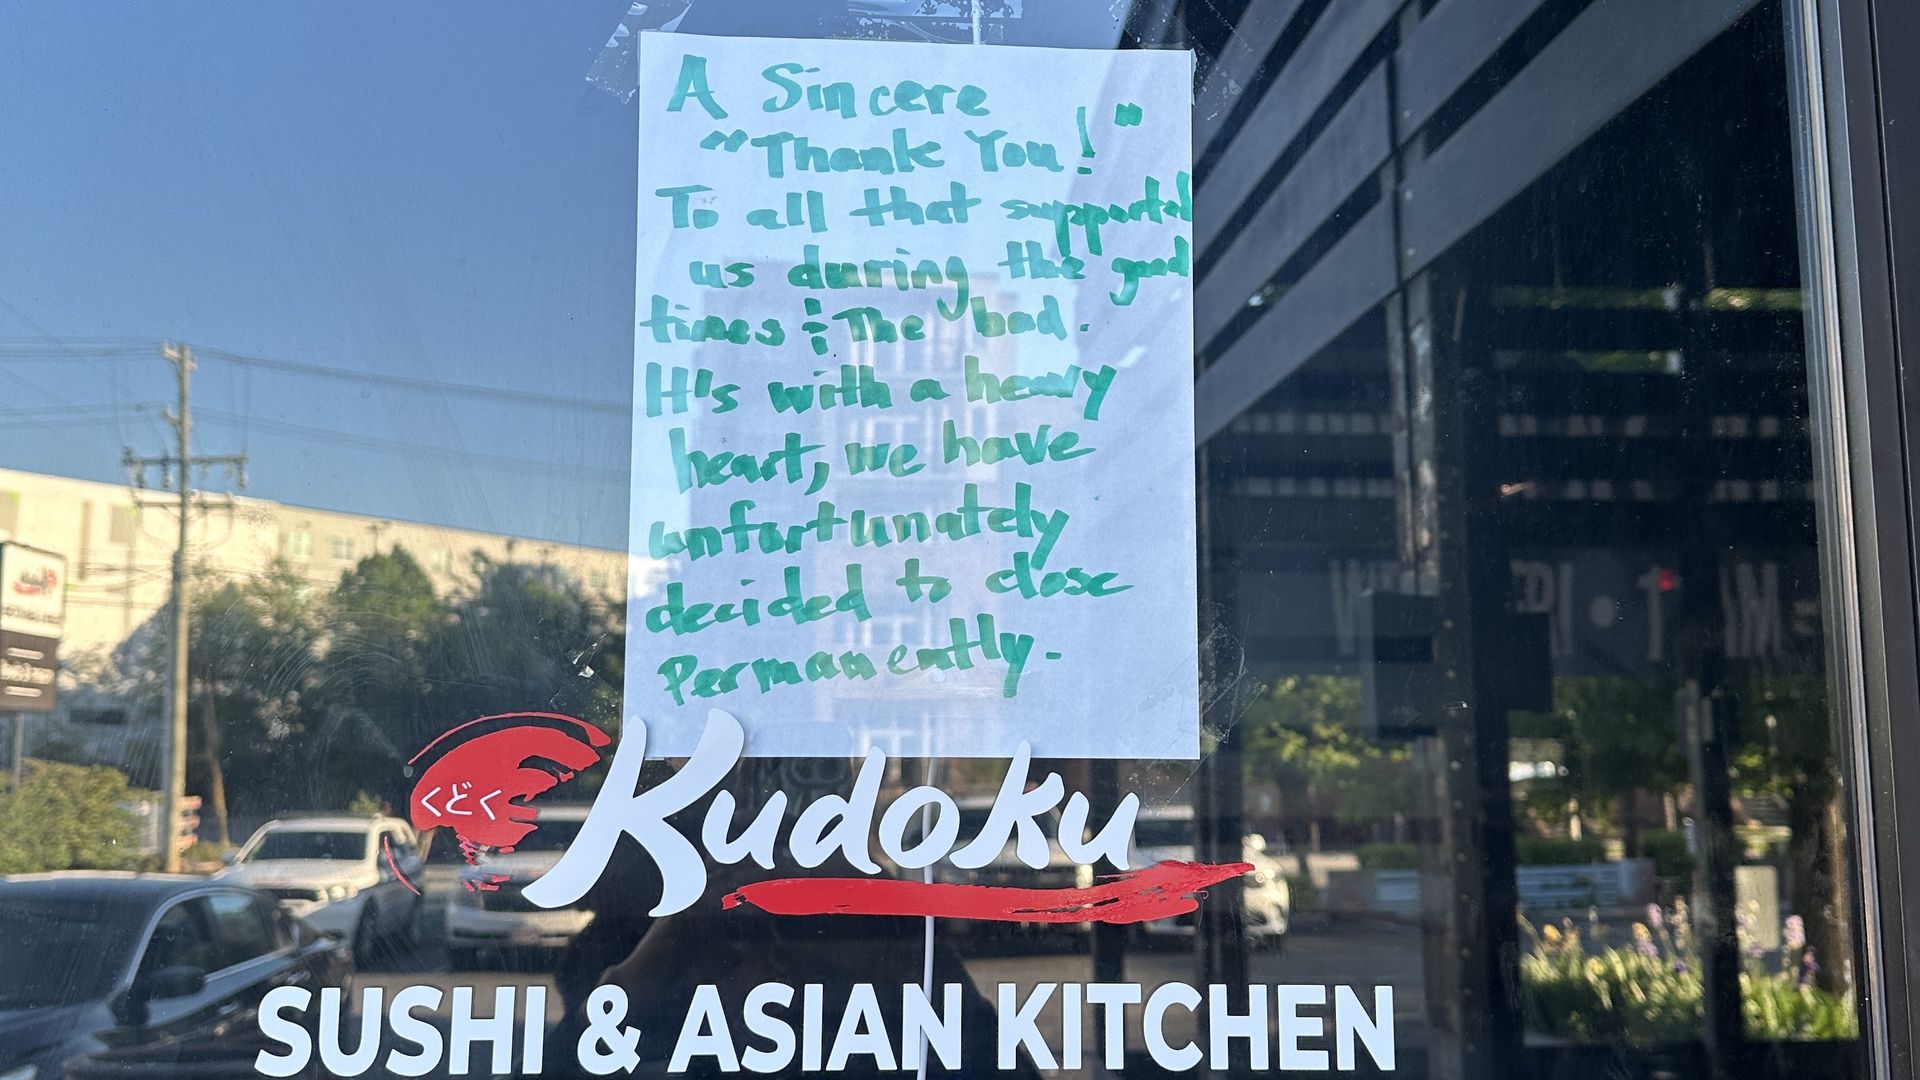 A Sincere
"Thank You!"
To all that supported
us during the good
times & The bad.
It's with a heavy
heart, we have
unfortunately
decided to close
Permanently.
くどく
Kudoku
SUSHI & ASIAN KITCHEN